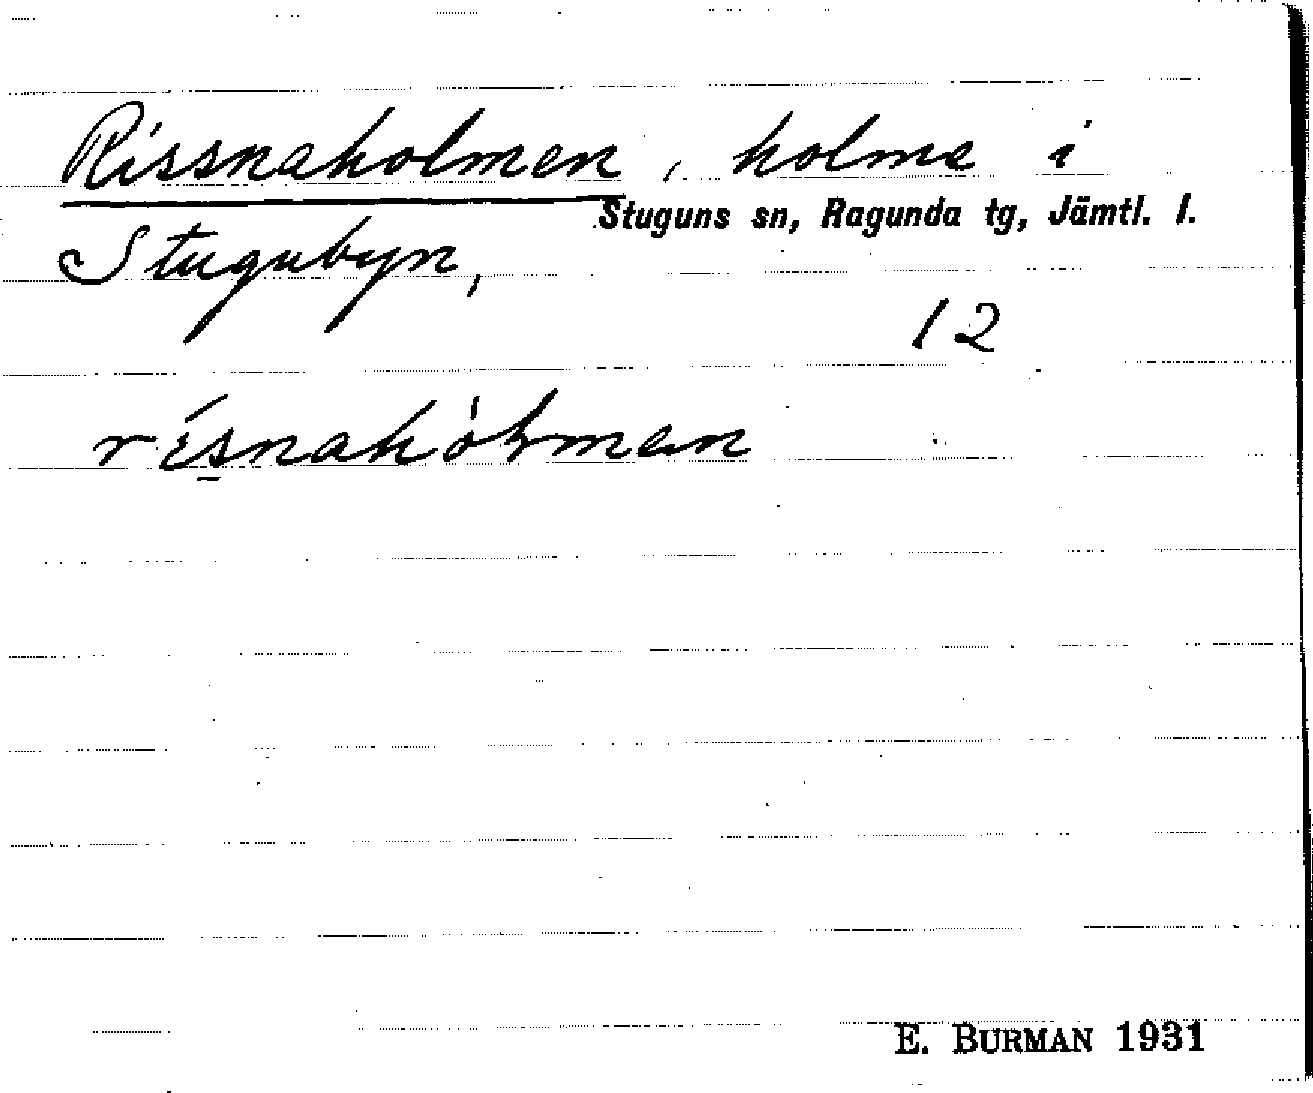 Rissnaholmen, holme i
Stuguns sn, Ragunda tg, Jämtl. l.
Stugubyn,
12
E. BURMAN 1931